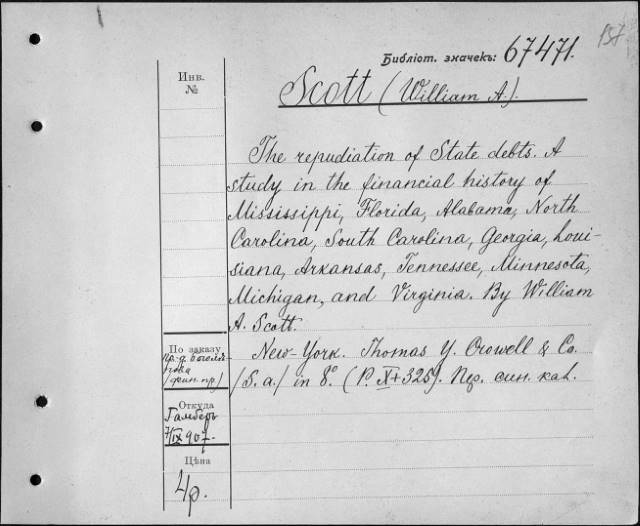 157
Библіот. значекъ: 67471.
Инв.
№
Scott (William A.).
The repudiation of State debts. A
study in the financial history of
Mississippi, Florida, Alabama, North
Carolina, South Carolina, Georgia, Loui-
siana, Arkansas, Tennessee, Minnesota,
Michigan, and Virginia. By William
A. Scott.
New-York. Thomas Y. Crowell & Co.
/S. a./ in 8º. (P. X+325). Пер. син. кал.
По заказу
Откуда
Гамберъ
7/IX 907.
Цѣна
4р.